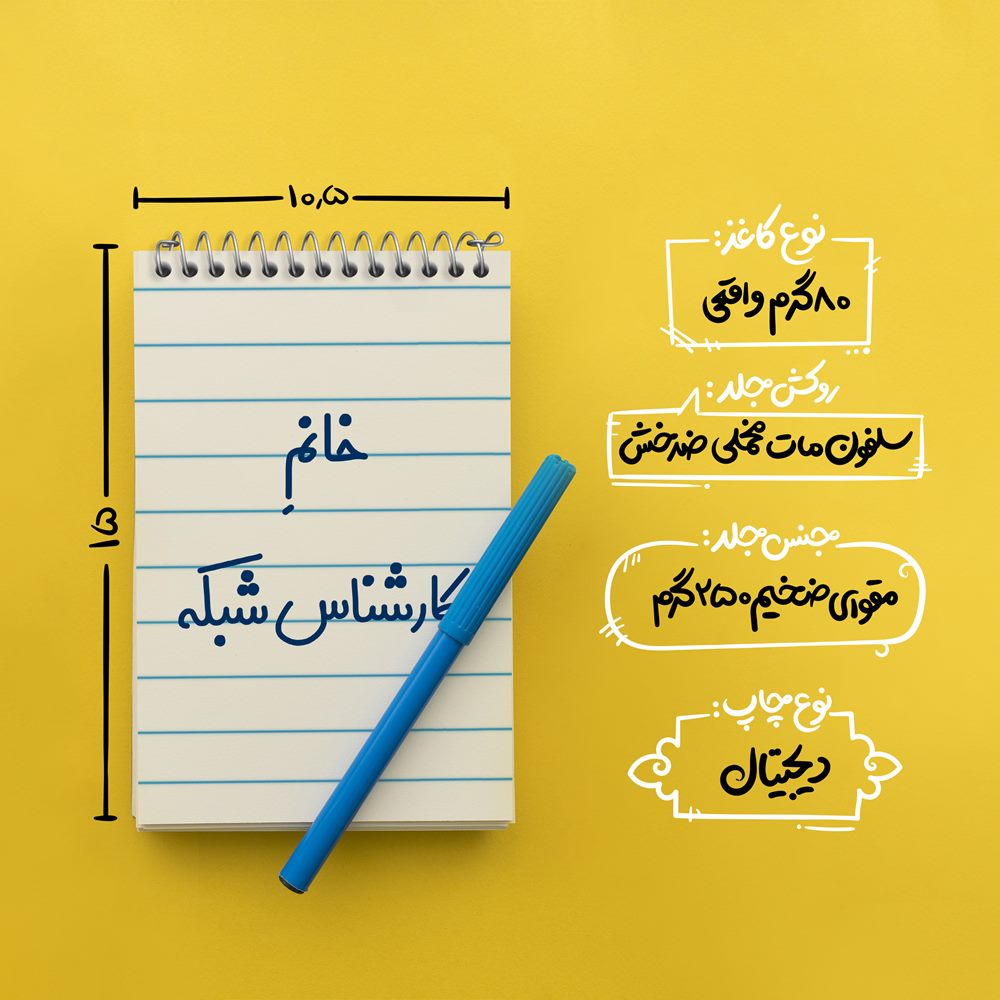 ۱۰٫۵
۱۵
خانمِ
کارشناس شبکه
نوع کاغذ:
۸۰ گرم واقعی
روکش جلد:
سلفون مات مخملی ضدخش
جنس جلد:
مقوای ضخیم ۲۵۰ گرم
نوع چاپ:
دیجیتال